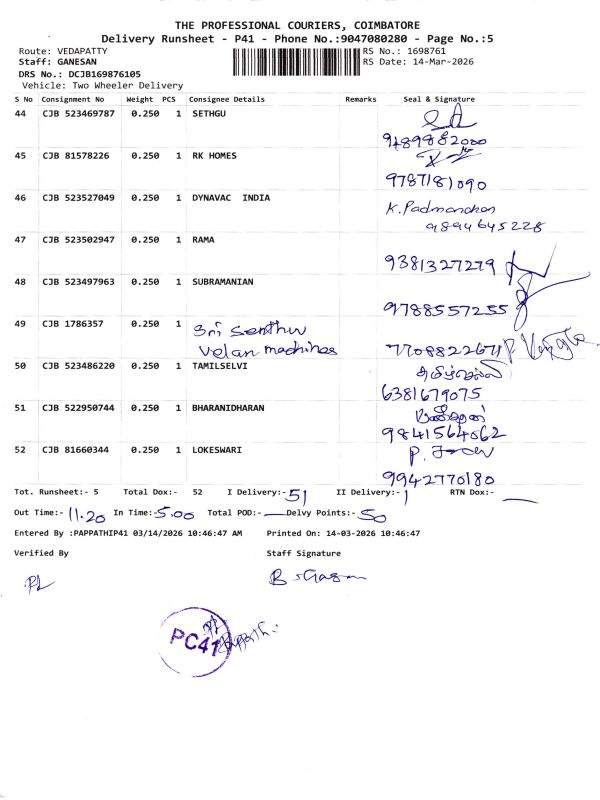 THE PROFESSIONAL COURIERS, COIMBATORE
Delivery Runsheet - P41 - Phone No.:9047080280 - Page No.:5
Route: VEDAPATTY RS No.: 1698761
Staff: GANESAN RS Date: 14-Mar-2026
DRS No.: DCJB169876105
Vehicle: Two Wheeler Delivery
S No Consignment No Weight PCS Consignee Details Remarks Seal & Signature
44 CJB 523469787 0.250 1 SETHGU
9489882000
45 CJB 81578226 0.250 1 RK HOMES
9787181090
46 CJB 523527049 0.250 1 DYNAVAC INDIA K.Padmanchan
9894645228
47 CJB 523502947 0.250 1 RAMA
9381327279
48 CJB 523497963 0.250 1 SUBRAMANIAN
9788557255
49 CJB 1786357 0.250 1 Sri Senthur
Velan machines 7708822671
50 CJB 523486220 0.250 1 TAMILSELVI தமிழ்செல்வி
6381679075
51 CJB 522950744 0.250 1 BHARANIDHARAN
9841564662
52 CJB 81660344 0.250 1 LOKESWARI
9942770180
Tot. Runsheet:- 5 Total Dox:- 52 I Delivery:- 51 II Delivery:- 1 RTN Dox:-
Out Time:- 11.20 In Time:- 5.00 Total POD:- Delvy Points:- 50
Entered By :PAPPATHIP41 03/14/2026 10:46:47 AM Printed On: 14-03-2026 10:46:47
Verified By Staff Signature
PC41